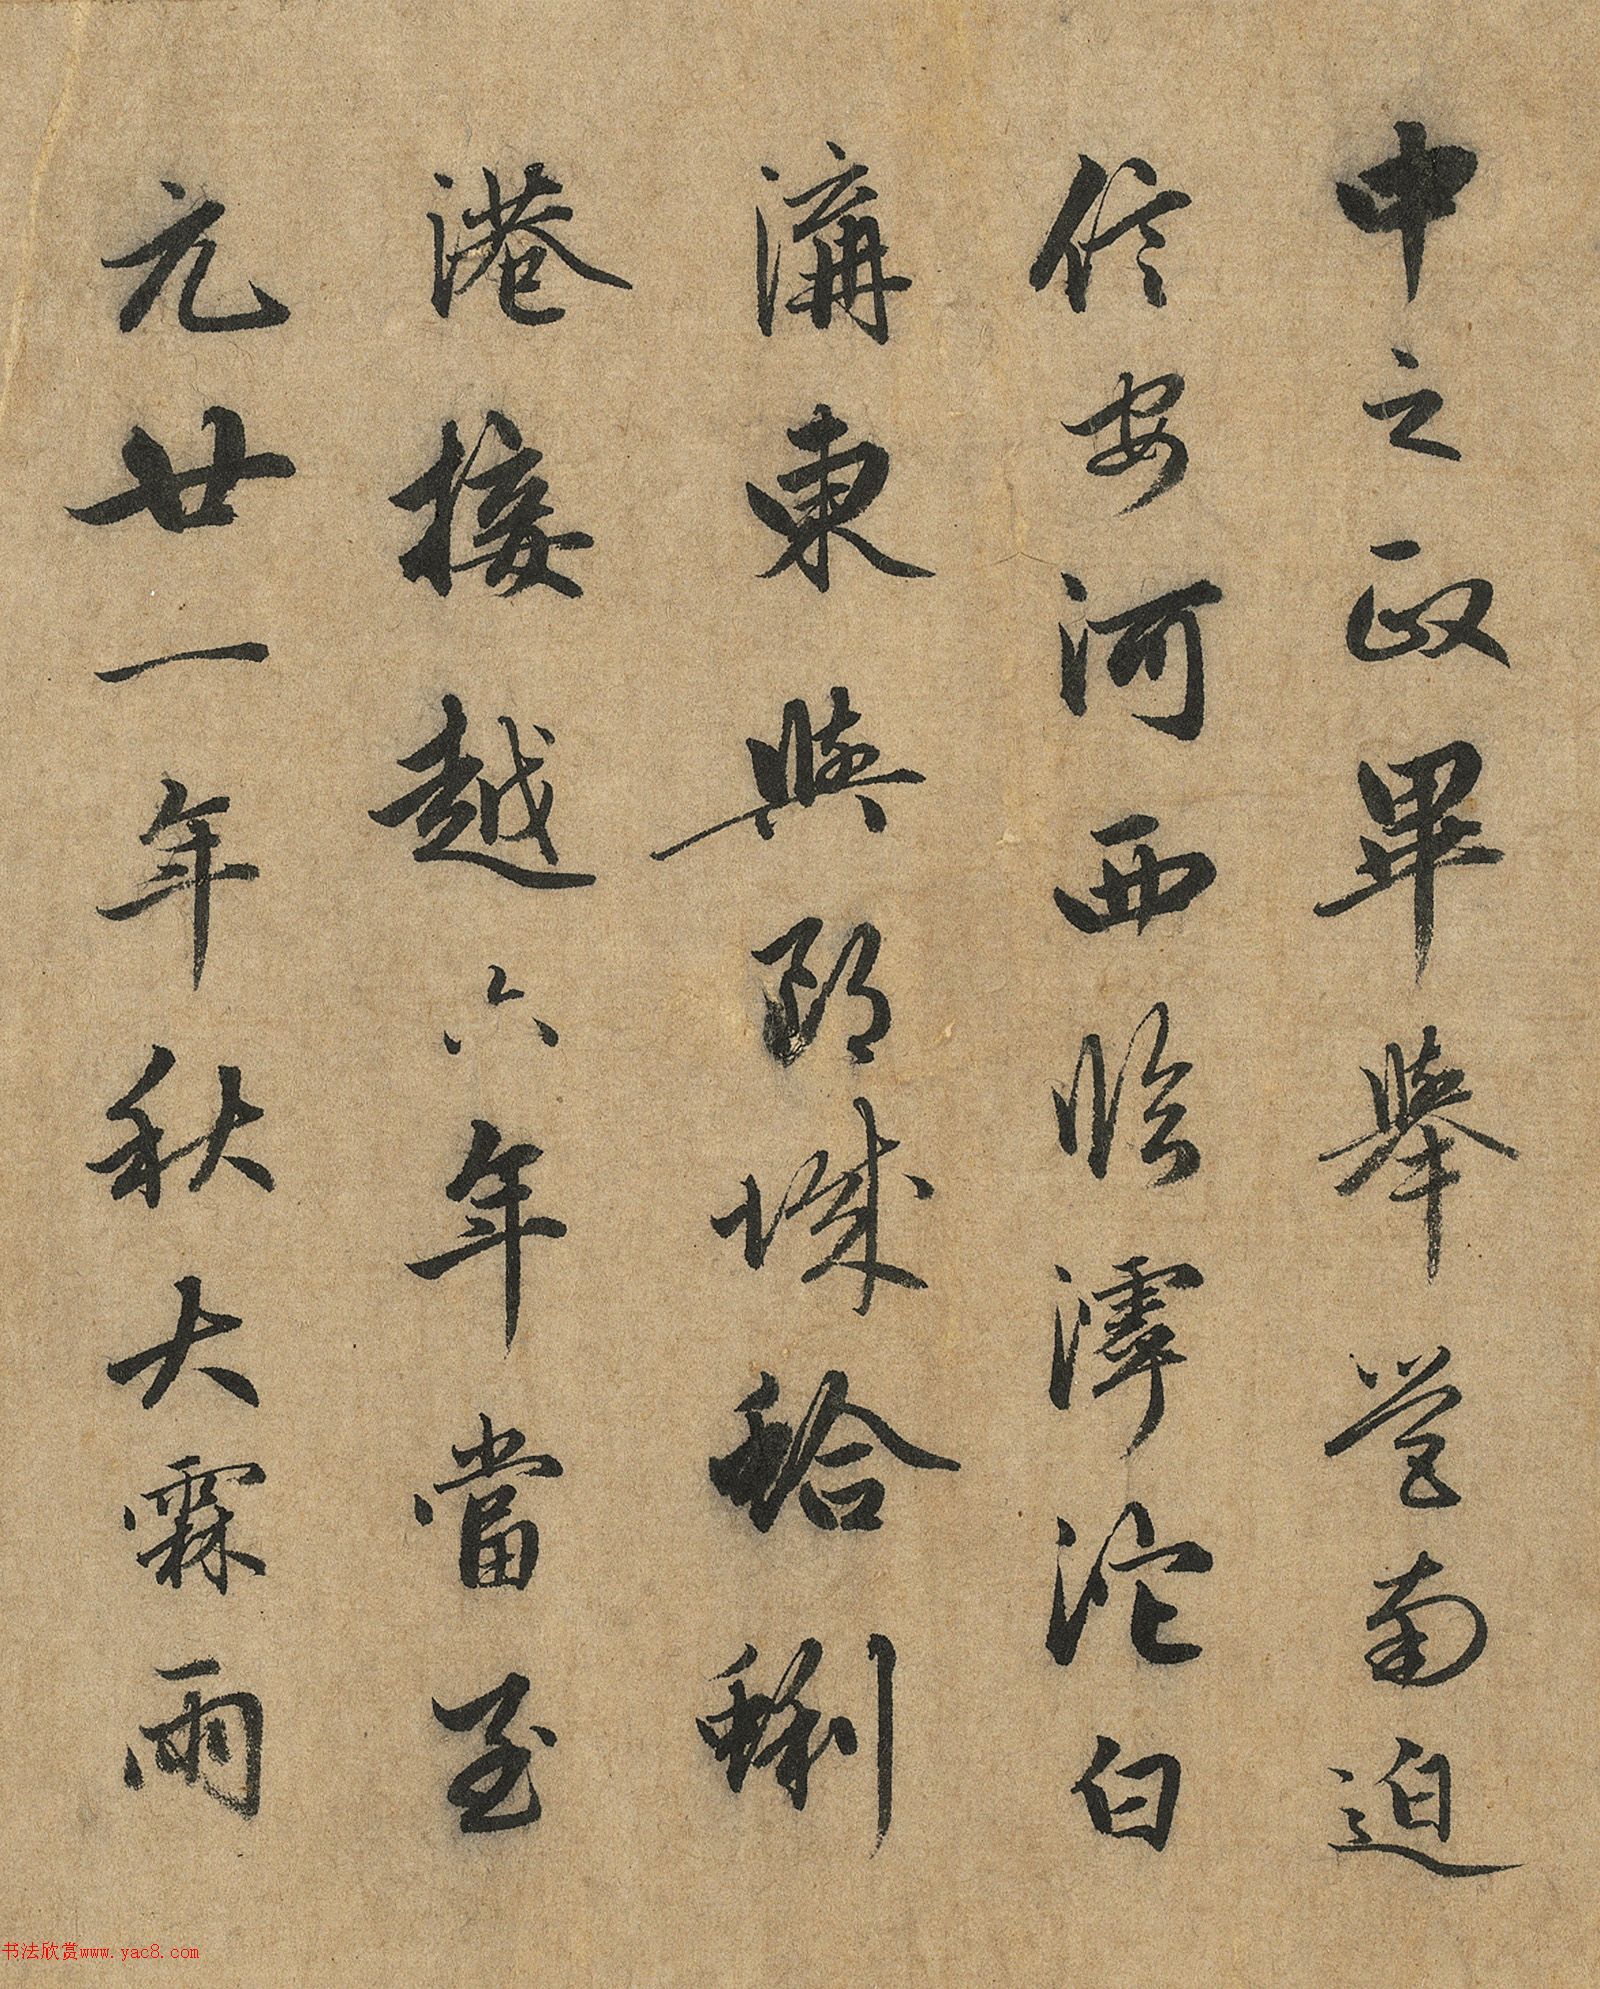 中之政畢舉營南迫
信安河西臨滹沱白
溝東與郎城蛤蜊
港接越六年當至
元廿一年秋大霖雨
书法欣赏www.yac8.com